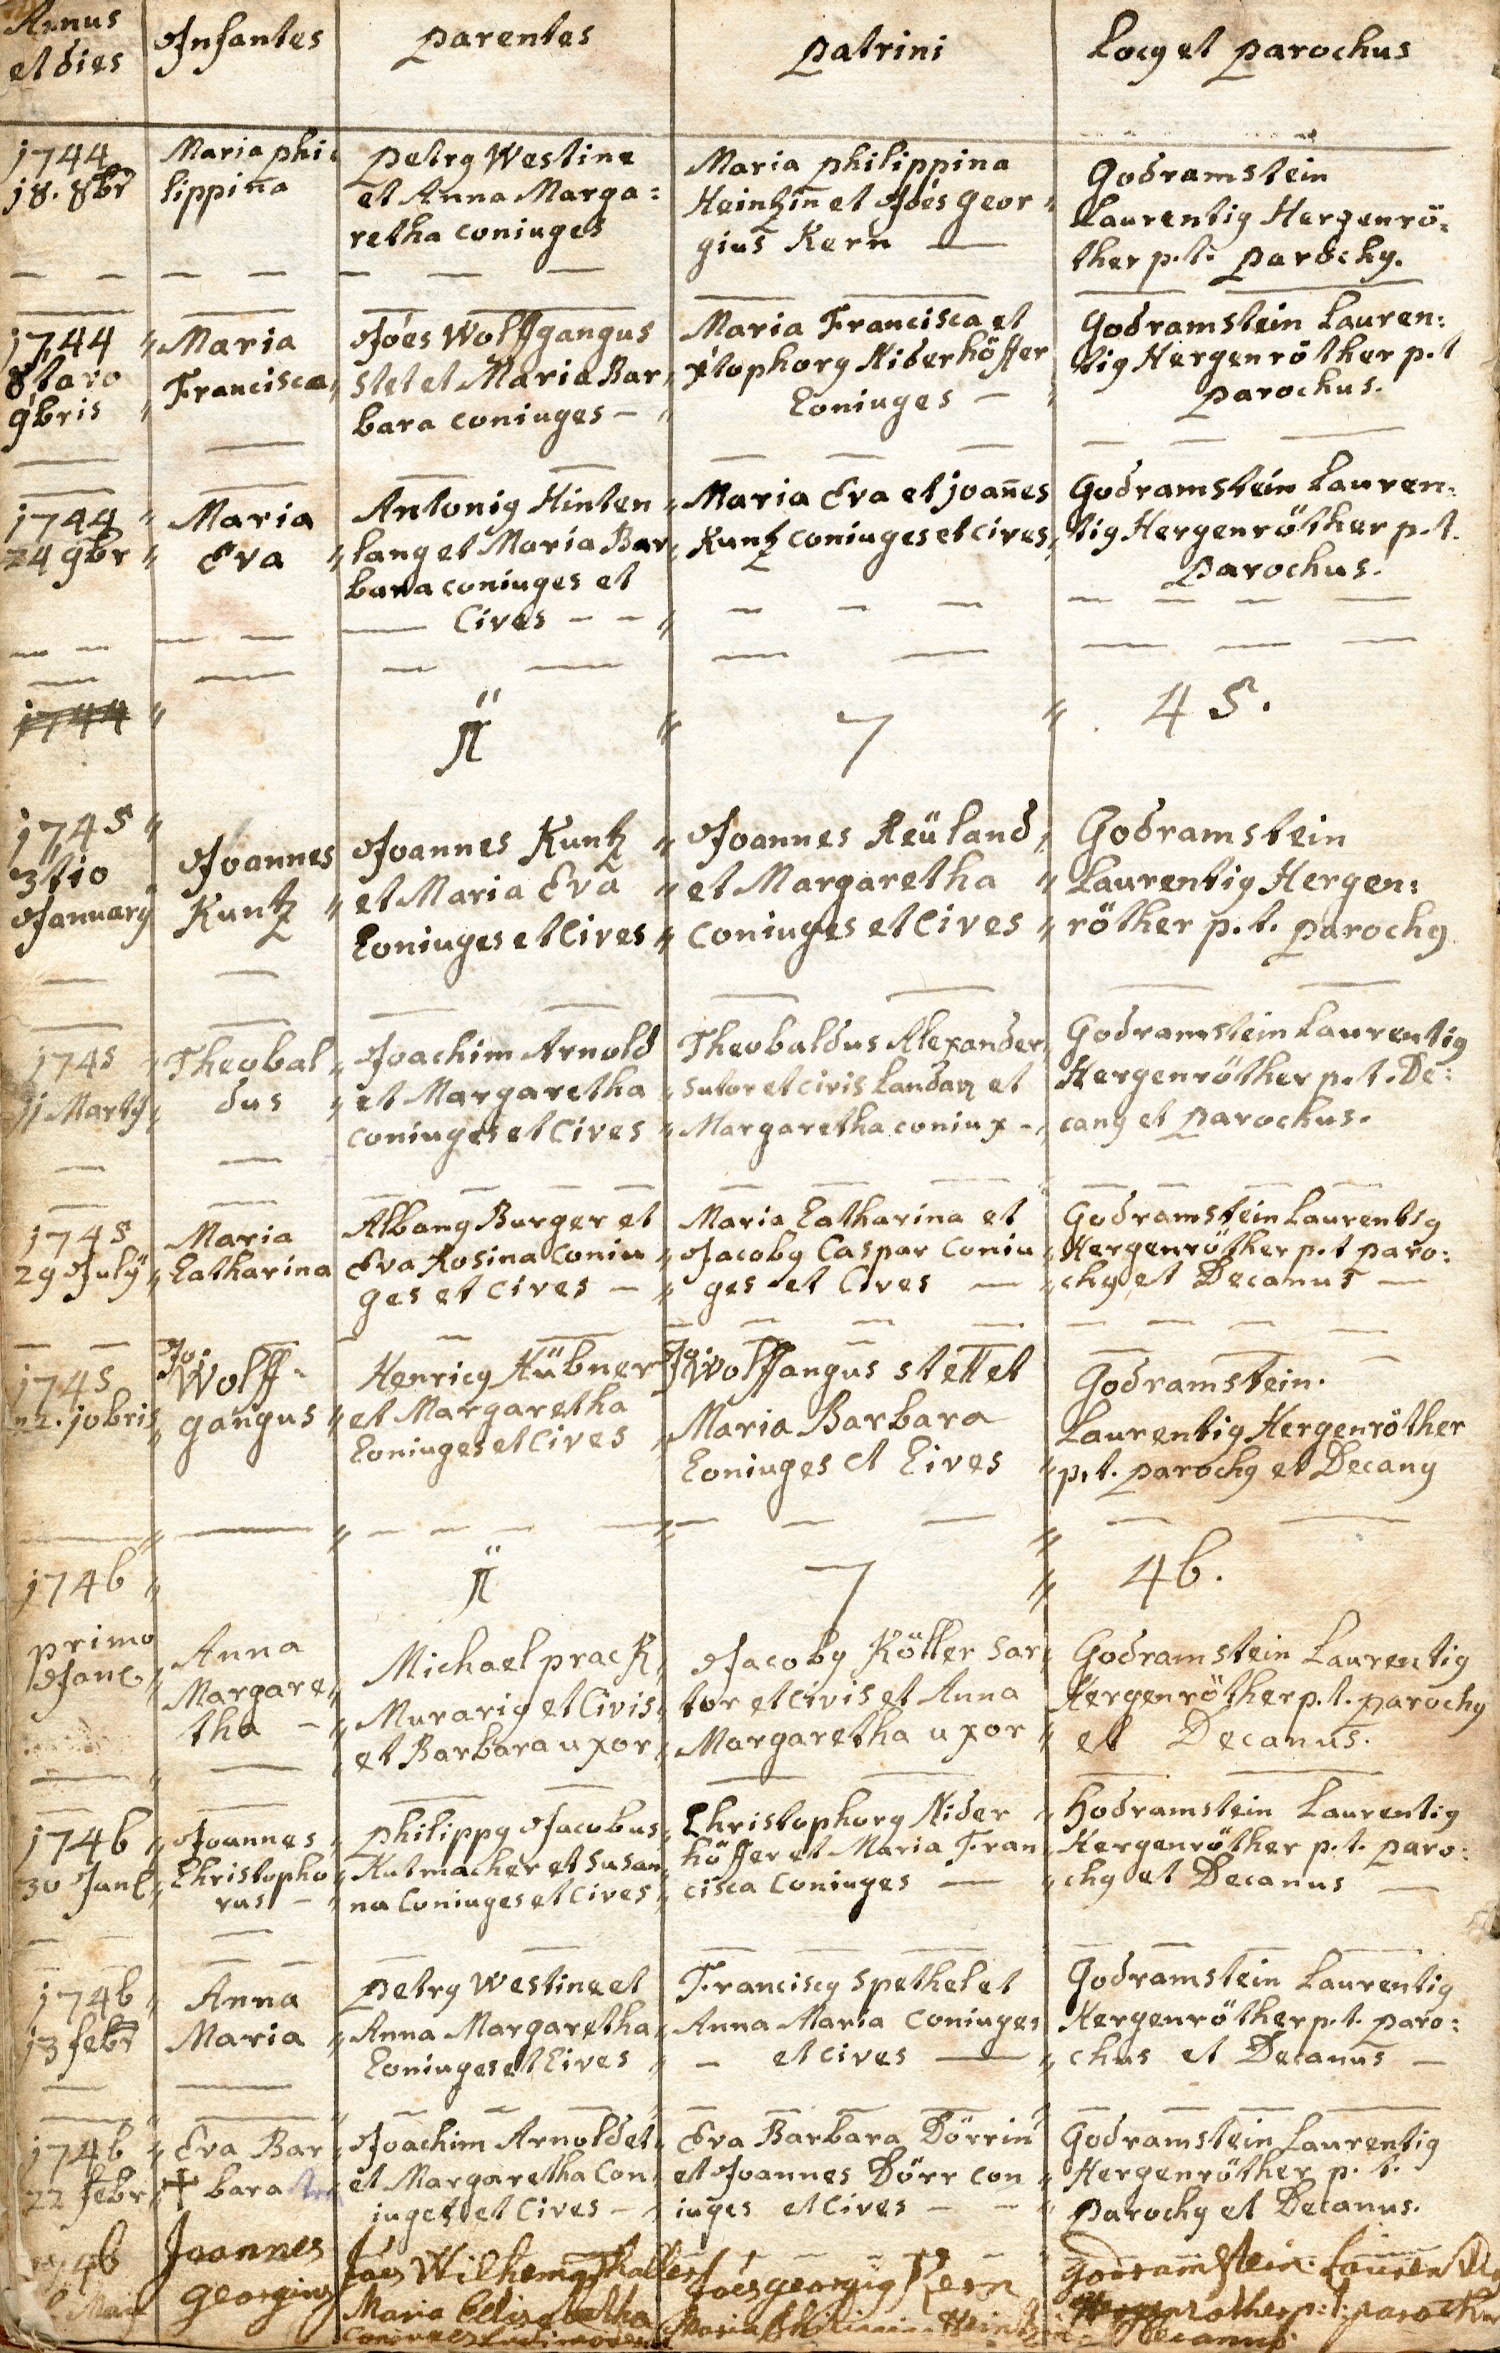 Annus
et dies
Infantes
parentes
patrini
Locꝰ et parochus
1744
18. 8br̄
Maria phi:
lippina
petrꝰ Westine
et Anna Marga:
retha coniuges
Maria philippina
Heintzin et Joēs geor:
gius Kern —
Godramstein
Laurentiꝰ Hergenrö:
ther p.t. parochꝰ.
1744
8tavo
9bris
Maria
Francisca
Joés Wolffgangus
Stet et Maria Bar
bara coniuges –
Maria Francisca et
xtophorꝰ Niderhöffer
Coniuges –
Godramstein Lauren:
tiꝰ Hergenröther p.t
parochus.
1744
24 9br
Maria
Eva
Antoniꝰ Hinten
lang et Maria Bar
bara coniuges et
Cives – –
Maria Eva et joan̄es
Kuntz coniuges et cives
Godramstein Lauren:
tiꝰ Hergenröther p.t.
parochus.
1744
7
45.
1745
3tio
Januarÿ
Joannes
Kuntz
Joannes Kuntz
et Maria Eva
Coniuges et Cives
Joannes Reüland
et Margaretha
Coniuges et Cives
Godramstein
Laurentiꝰ Hergen:
röther p.t. parochꝰ
1745
11 Martÿ
Theobal
dus
Joachim Arnold
et Margaretha
coniuges et Cives
Theobaldus Alexander
sutor et civis Landav et
Margaretha coniux –
Godramstein Laurentiꝰ
Hergenröther p.t. De:
canꝰ et parochus.
1745
29 Julÿ
Maria
Catharina
Albanꝰ Burger et
Eva Rosina Coniu
ges et cives –
Maria Catharina et
Jacobꝰ Caspar Coniu
ges et Cives —
Godramstein Laurentiꝰ
Hergenröther p.t paro:
chꝰ et Decanus —
1745
22. 10bris
Jo:
Wolff-
gangus
Henricꝰ Hübner
et Margaretha
Coniuges et Cives
Jo: Wolffangus stett et
Maria Barbara
Coniuges et Cives
Godramstein.
Laurentiꝰ Hergenröther
p.t. parochꝰ et Decanꝰ
1746
7
46.
primo
Jan
Anna
Margare
tha –
Michael prack
Murariꝰ et Civis
et Barbara uxor
Jacobꝰ Köller Sar
tor et civis et Anna
Margaretha uxor
Godramstein Laurentiꝰ
Hergenröther p.t. parochꝰ
et Decanus.
1746
30 Jan
Joannes
Christopho
rus –
philippꝰ Jacobus
Hutmacher et Susan
na Coniuges et Cives
Christophorꝰ Nider
höffer et Maria Fran
cisca Coniuges —
Godramstein Laurentiꝰ
Hergenröther p.t. paro:
chꝰ et Decanus —
1746
13 febr
Anna
Maria
petrꝰ Westine et
Anna Margaretha
Coniuges et Cives
Franciscꝰ Spethel et
Anna Maria Coniuges
– et cives —
Godramstein Laurentiꝰ
Hergenröther p.t. paro:
chus et Decanus –
1746
22 febr
Eva Bar
✝ bara
Joachim Arnold et
et Margaretha Con
iuges et Cives –
Eva Barbara Dörrin
et Joannes Dörr con
iuges et Cives – –
Godramstein Laurentiꝰ
Hergenröther p.t.
parochꝰ et Decanus.
1746
May
Joannes
Georgius
Joēs Wilhemꝰ
Maria Elisabetha
coniuges
Joēs georgiꝰ Kern
Maria
Godramstein Laurentiꝰ
Hergenröther p:t: parochus
Decanus